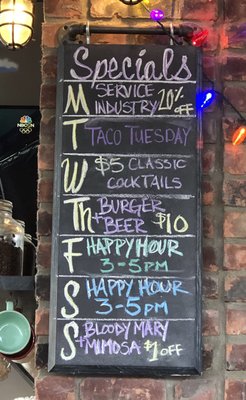 Specials
M SERVICE
INDUSTRY 20% OFF
T TACO TUESDAY
W $5 CLASSIC
COCKTAILS
Th BURGER
+ BEER $10
F HAPPY HOUR
3-5PM
S HAPPY HOUR
3-5PM
S BLOODY MARY
+ MIMOSA $1 OFF
NBC